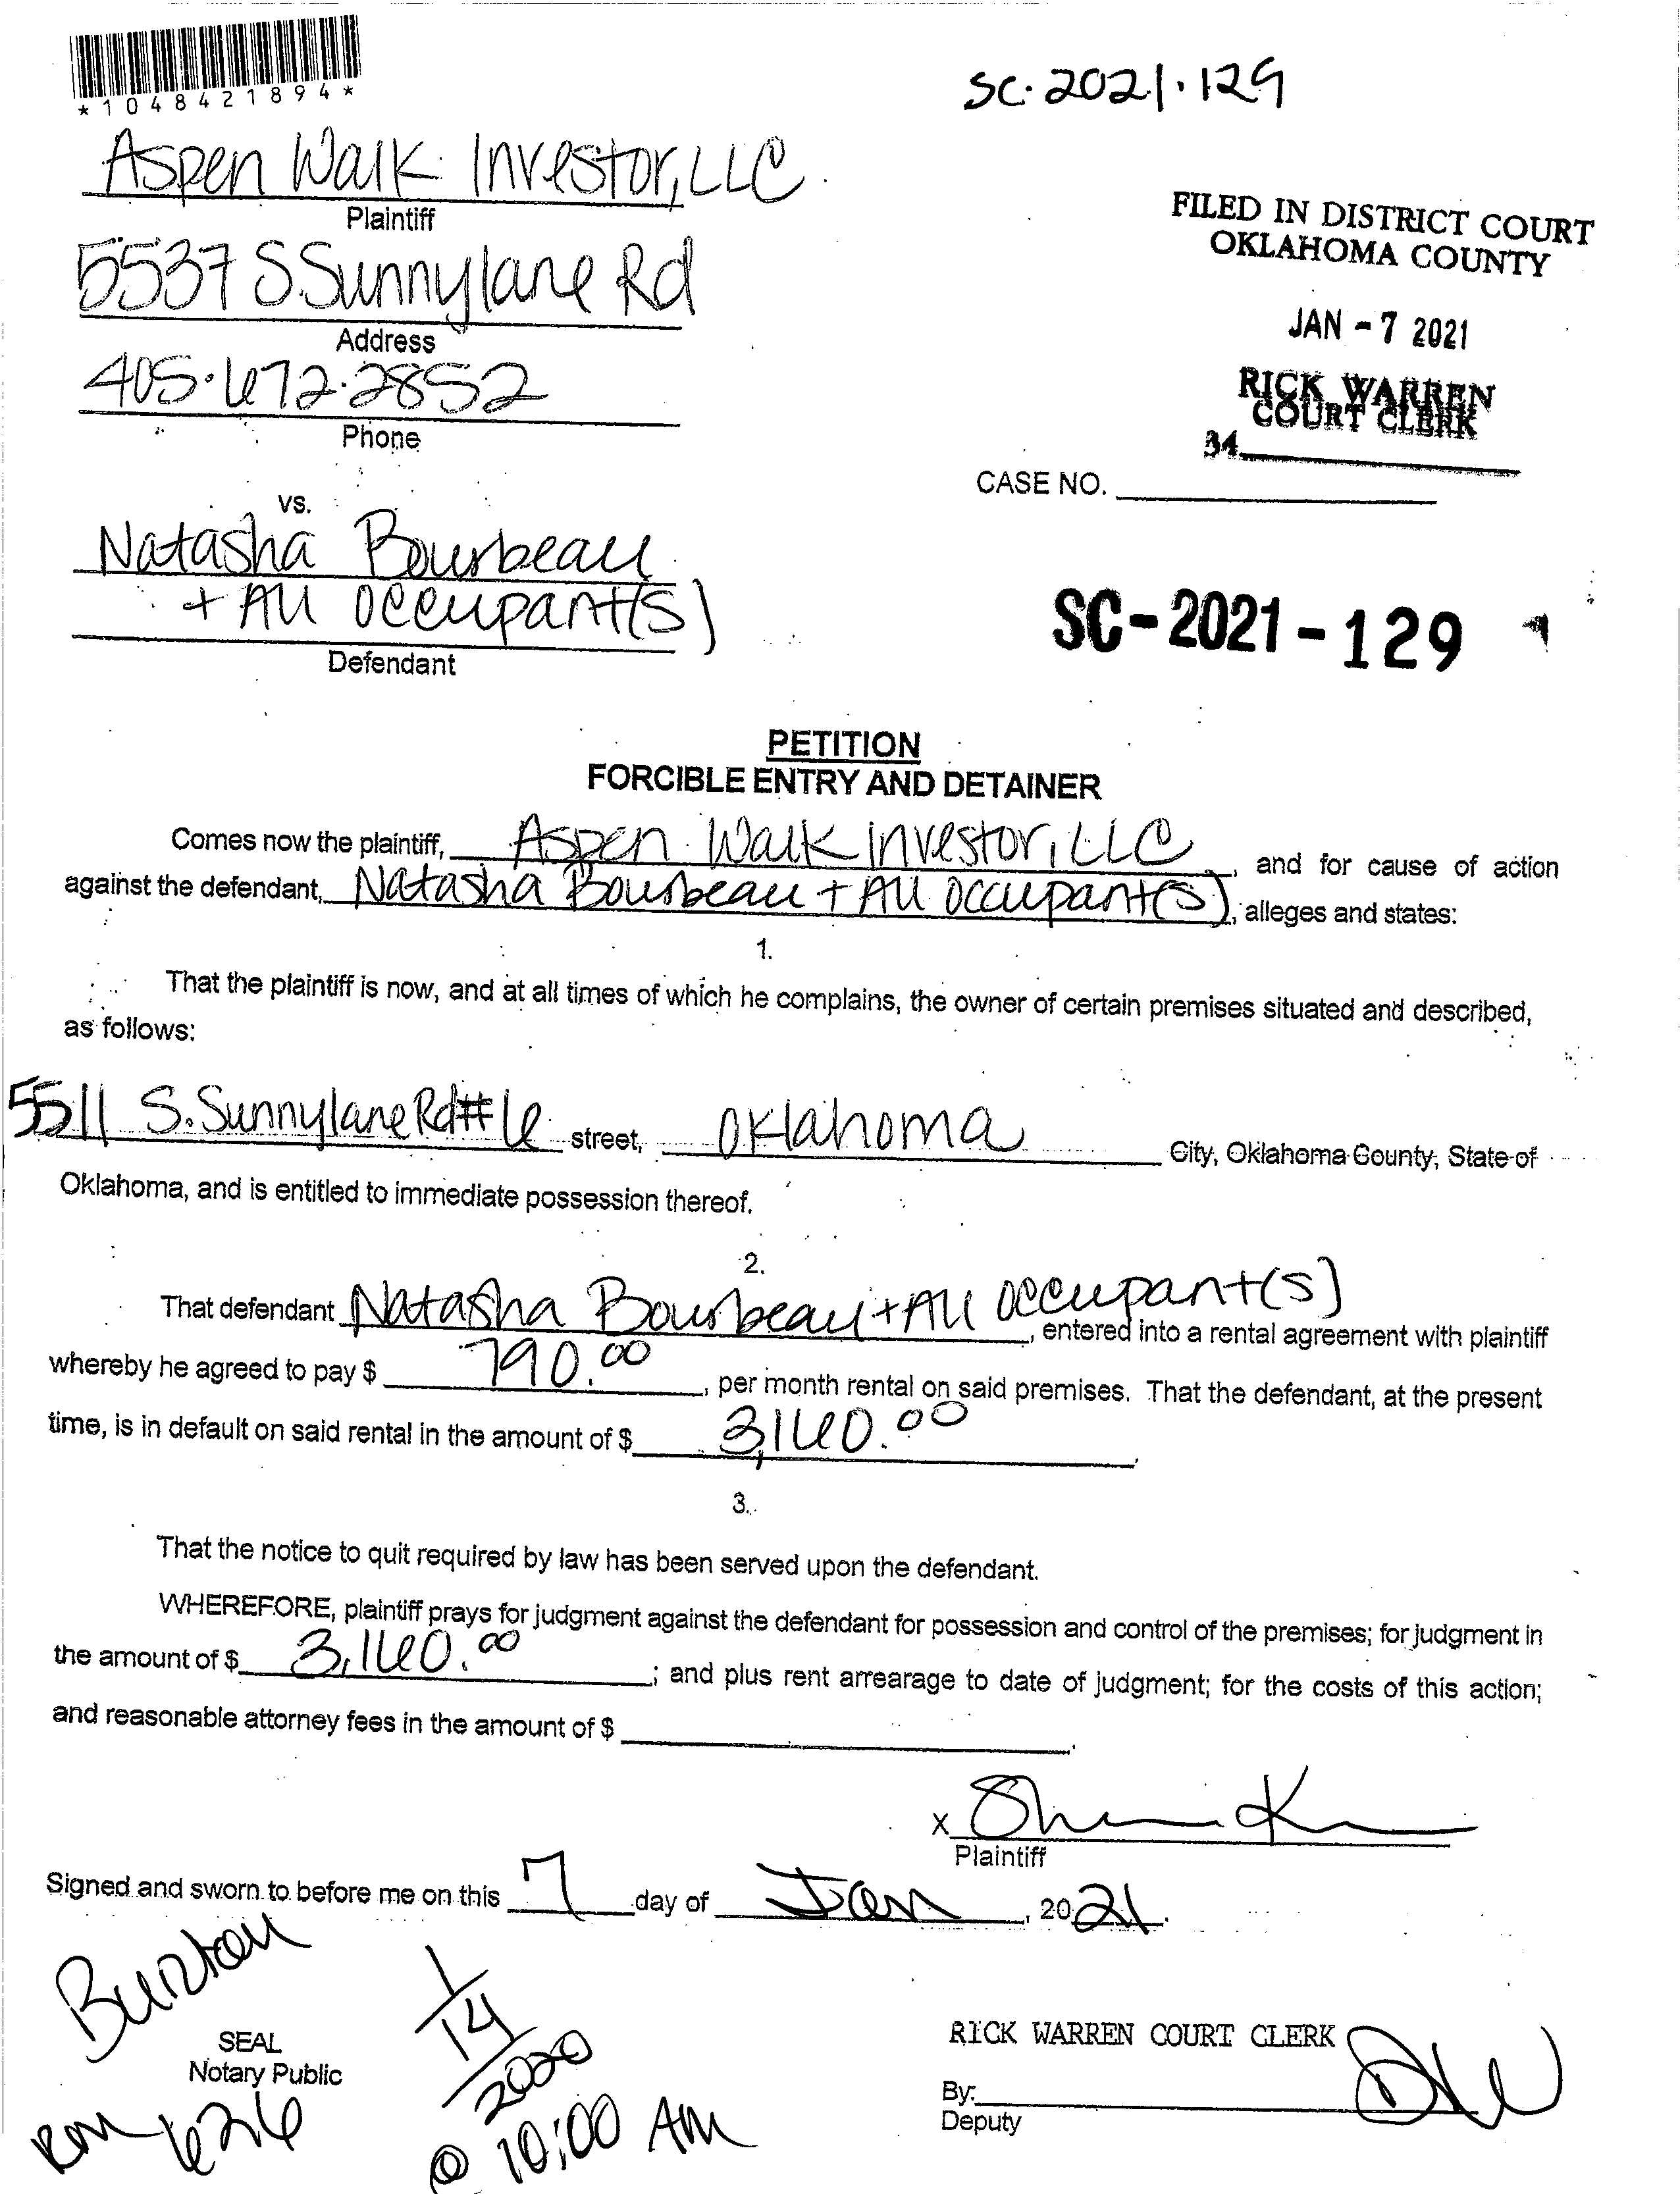 *1048421894*
SC. 2021. 129
Aspen Walk Investor, LLC
Plaintiff
FILED IN DISTRICT COURT
OKLAHOMA COUNTY
5537 S. Sunnylane Rd
Address
JAN - 7 2021
405.672.2852
Phone
RICK WARREN
COURT CLERK
34
CASE NO.
vs.
Natasha Bourbeau
+ All occupant(s)
Defendant
SC-2021-129
PETITION
FORCIBLE ENTRY AND DETAINER
Comes now the plaintiff, Aspen Walk Investor, LLC, and for cause of action
against the defendant, Natasha Bourbeau + All occupant(s), alleges and states:
1.
That the plaintiff is now, and at all times of which he complains, the owner of certain premises situated and described,
as follows:
5511 S. Sunnylane Rd #6 street, Oklahoma City, Oklahoma County, State of
Oklahoma, and is entitled to immediate possession thereof.
2.
That defendant Natasha Bourbeau + All occupant(s), entered into a rental agreement with plaintiff
whereby he agreed to pay $ 790.00, per month rental on said premises. That the defendant, at the present
time, is in default on said rental in the amount of $ 3,160.00.
3.
That the notice to quit required by law has been served upon the defendant.
WHEREFORE, plaintiff prays for judgment against the defendant for possession and control of the premises; for judgment in
the amount of $ 3,160.00; and plus rent arrearage to date of judgment; for the costs of this action;
and reasonable attorney fees in the amount of $
X
Plaintiff
Signed and sworn to before me on this 7 day of Jan, 2021.
SEAL
Notary Public
Rm 626
1/14/2020
@ 10:00 AM
RICK WARREN COURT CLERK
By:
Deputy